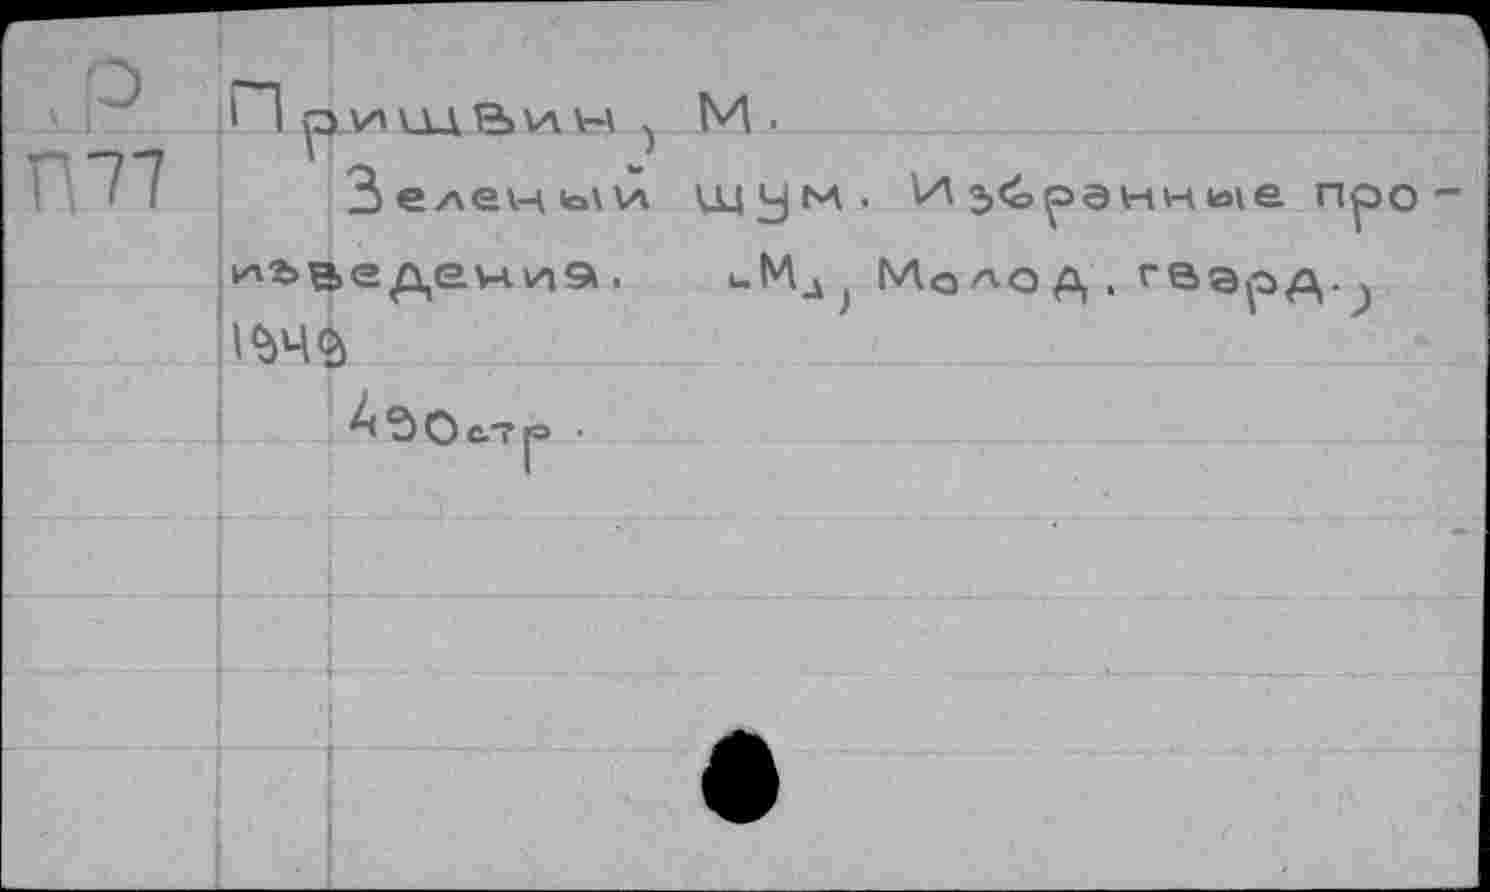 Р
Пришвин, М.
П77
Зеленый шум. Избранные про-
изведения. М., Молод. гвард.,
1949
490стр.